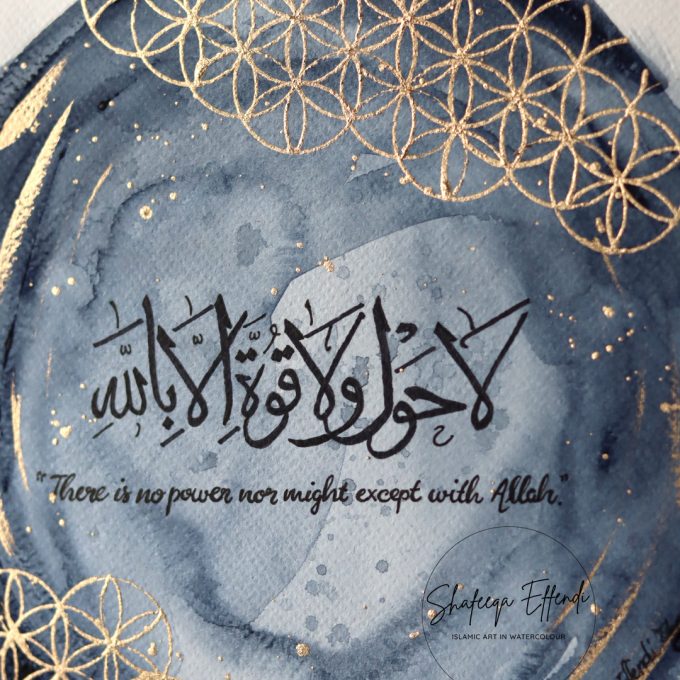 لَا حَوْلَ وَلَا قُوَّةَ إِلَّا بِاللَّهِ
"There is no power nor might except with Allah."
Shafeeqa Effendi
ISLAMIC ART IN WATERCOLOUR